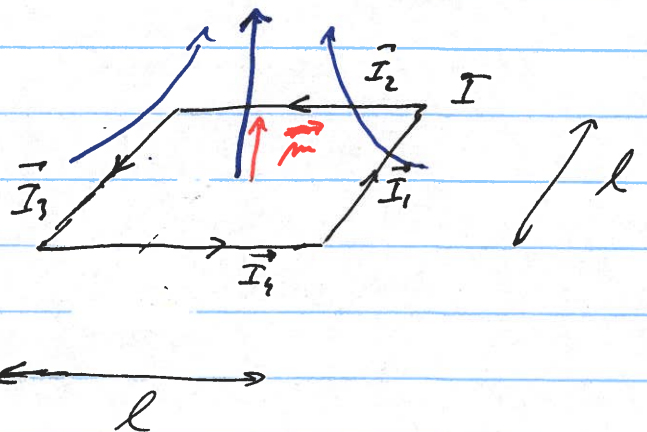 I⃗₂ I
m⃗
I⃗₃ I⃗₁ l
I⃗₄
l